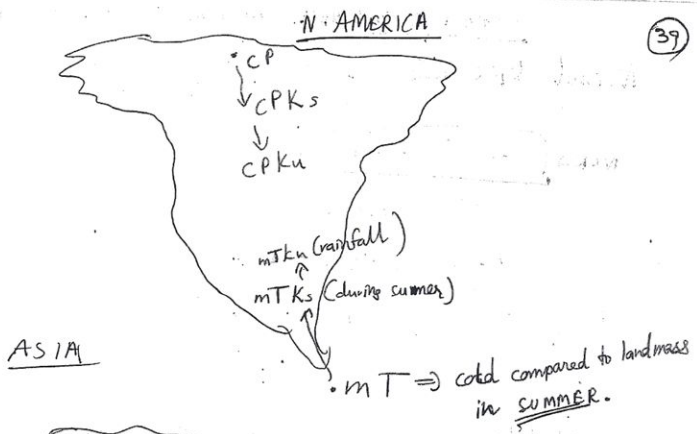 N. AMERICA
39
CP
CPKs
CPKu
mTKu (rainfall)
mTKs (during summer)
ASIA
mT ⇒ cold compared to landmass
in SUMMER.